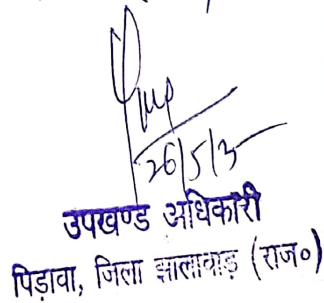 26/5/13
उपखण्ड अधिकारी
पिड़ावा, जिला झालावाड़ (राज०)